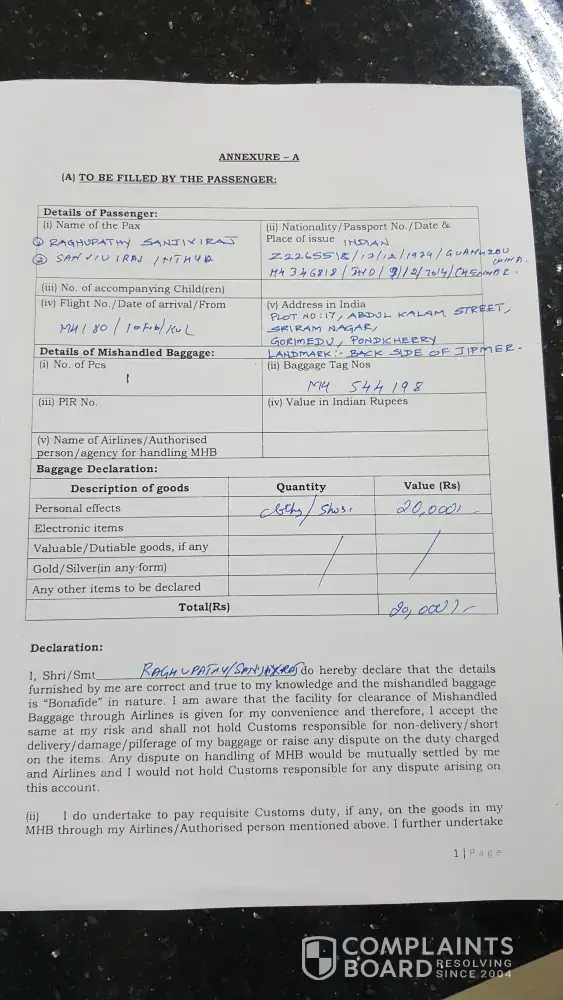 ANNEXURE – A
(A) TO BE FILLED BY THE PASSENGER:
Details of Passenger:
(i) Name of the Pax
① RAGHUPATHY SANJIVIRAJ
② SANJIVIRAJ
(ii) Nationality/Passport No./Date &
Place of issue INDIAN
Z2265518/17/12/1974/GUANGZOU
CHINA.
(iii) No. of accompanying Child(ren)
(iv) Flight No./Date of arrival/From
MH180/10Feb/KUL
(v) Address in India
PLOT NO:17, ABDUL KALAM STREET,
SRIRAM NAGAR,
GORIMEDU, PONDICHERRY
LANDMARK:- BACK SIDE OF JIPMER.
Details of Mishandled Baggage:
(i) No. of Pcs
1
(ii) Baggage Tag Nos
MH 544198
(iii) PIR No.
(iv) Value in Indian Rupees
(v) Name of Airlines/Authorised
person/agency for handling MHB
Baggage Declaration:
Description of goods Quantity Value (Rs)
Personal effects 20,000/-
Electronic items
Valuable/Dutiable goods, if any
Gold/Silver(in any form)
Any other items to be declared
Total(Rs) 20,000/-
Declaration:
I, Shri/Smt RAGHUPATHY/SANJIVIRAJ do hereby declare that the details
furnished by me are correct and true to my knowledge and the mishandled baggage
is “Bonafide” in nature. I am aware that the facility for clearance of Mishandled
Baggage through Airlines is given for my convenience and therefore, I accept the
same at my risk and shall not hold Customs responsible for non-delivery/short
delivery/damage/pilferage of my baggage or raise any dispute on the duty charged
on the items. Any dispute on handling of MHB would be mutually settled by me
and Airlines and I would not hold Customs responsible for any dispute arising on
this account.
(ii) I do undertake to pay requisite Customs duty, if any, on the goods in my
MHB through my Airlines/Authorised person mentioned above. I further undertake
1 | Page
COMPLAINTS
BOARD RESOLVING
SINCE 2004